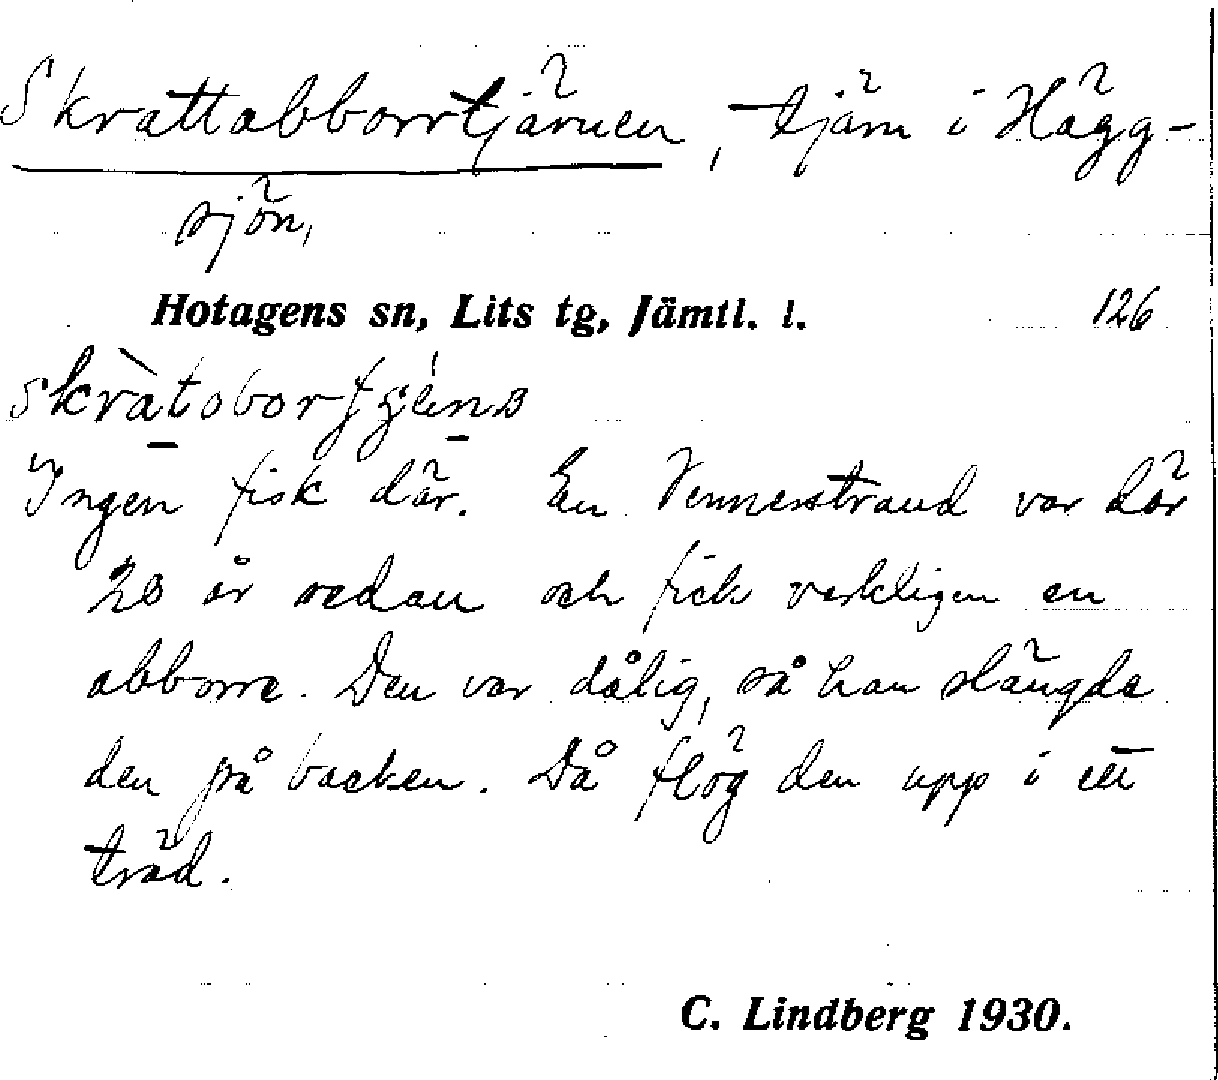 Skrattabborrtjärnen, tjärn i Hägg-
sjön,
Hotagens sn, Lits tg, Jämtl. l. 126
Ingen fisk där. En Vennerstrand var där
20 år sedan och fick verkligen en
abborre. Den var dålig, så han slängde
den på backen. Då flög den upp i ett
träd.
C. Lindberg 1930.